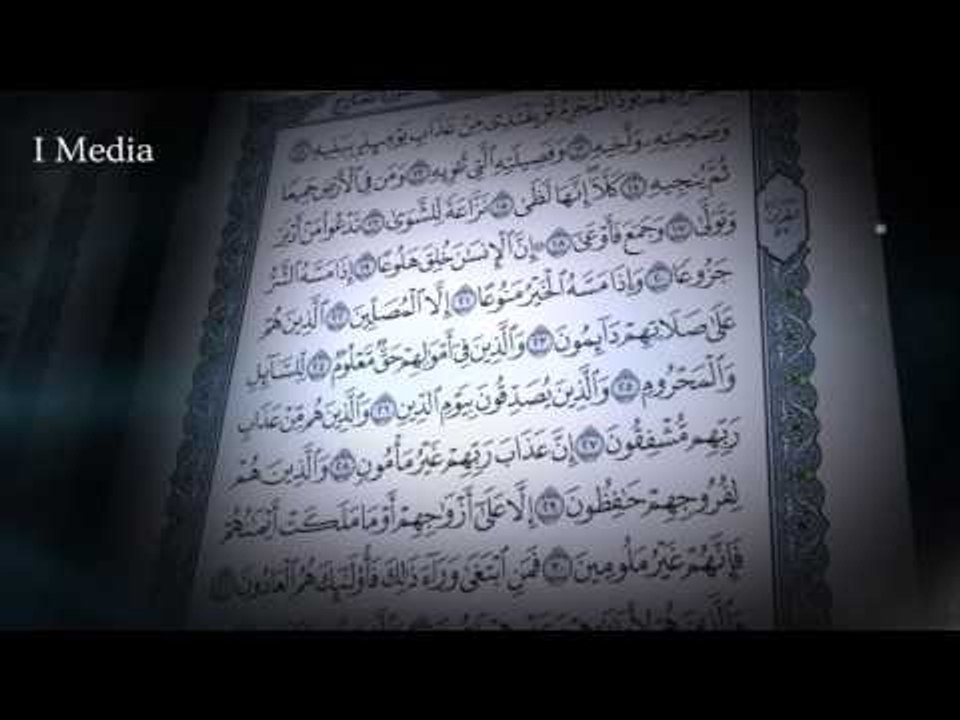 I Media
يُبَصَّرُونَهُمْ يَوَدُّ ٱلْمُجْرِمُ لَوْ يَفْتَدِى مِنْ عَذَابِ يَوْمِئِذٍۭ بِبَنِيهِ ١١
وَصَٰحِبَتِهِۦ وَأَخِيهِ ١٢ وَفَصِيلَتِهِ ٱلَّتِى تُـْٔوِيهِ ١٣ وَمَن فِى ٱلْأَرْضِ جَمِيعًا
ثُمَّ يُنجِيهِ ١٤ كَلَّآ إِنَّهَا لَظَىٰ ١٥ نَزَّاعَةً لِّلشَّوَىٰ ١٦ تَدْعُوا۟ مَنْ أَدْبَرَ
وَتَوَلَّىٰ ١٧ وَجَمَعَ فَأَوْعَىٰٓ ١٨ إِنَّ ٱلْإِنسَٰنَ خُلِقَ هَلُوعًا ١٩ إِذَا مَسَّهُ ٱلشَّرُّ
جَزُوعًا ٢٠ وَإِذَا مَسَّهُ ٱلْخَيْرُ مَنُوعًا ٢١ إِلَّا ٱلْمُصَلِّينَ ٢٢ ٱلَّذِينَ هُمْ
عَلَىٰ صَلَاتِهِمْ دَآئِمُونَ ٢٣ وَٱلَّذِينَ فِىٓ أَمْوَٰلِهِمْ حَقٌّ مَّعْلُومٌ ٢٤ لِّلسَّآئِلِ
وَٱلْمَحْرُومِ ٢٥ وَٱلَّذِينَ يُصَدِّقُونَ بِيَوْمِ ٱلدِّينِ ٢٦ وَٱلَّذِينَ هُم مِّنْ عَذَابِ
رَبِّهِم مُّشْفِقُونَ ٢٧ إِنَّ عَذَابَ رَبِّهِمْ غَيْرُ مَأْمُونٍ ٢٨ وَٱلَّذِينَ هُمْ
لِفُرُوجِهِمْ حَٰفِظُونَ ٢٩ إِلَّا عَلَىٰٓ أَزْوَٰجِهِمْ أَوْ مَا مَلَكَتْ أَيْمَٰنُهُمْ
فَإِنَّهُمْ غَيْرُ مَلُومِينَ ٣٠ فَمَنِ ٱبْتَغَىٰ وَرَآءَ ذَٰلِكَ فَأُو۟لَٰٓئِكَ هُمُ ٱلْعَادُونَ ٣١